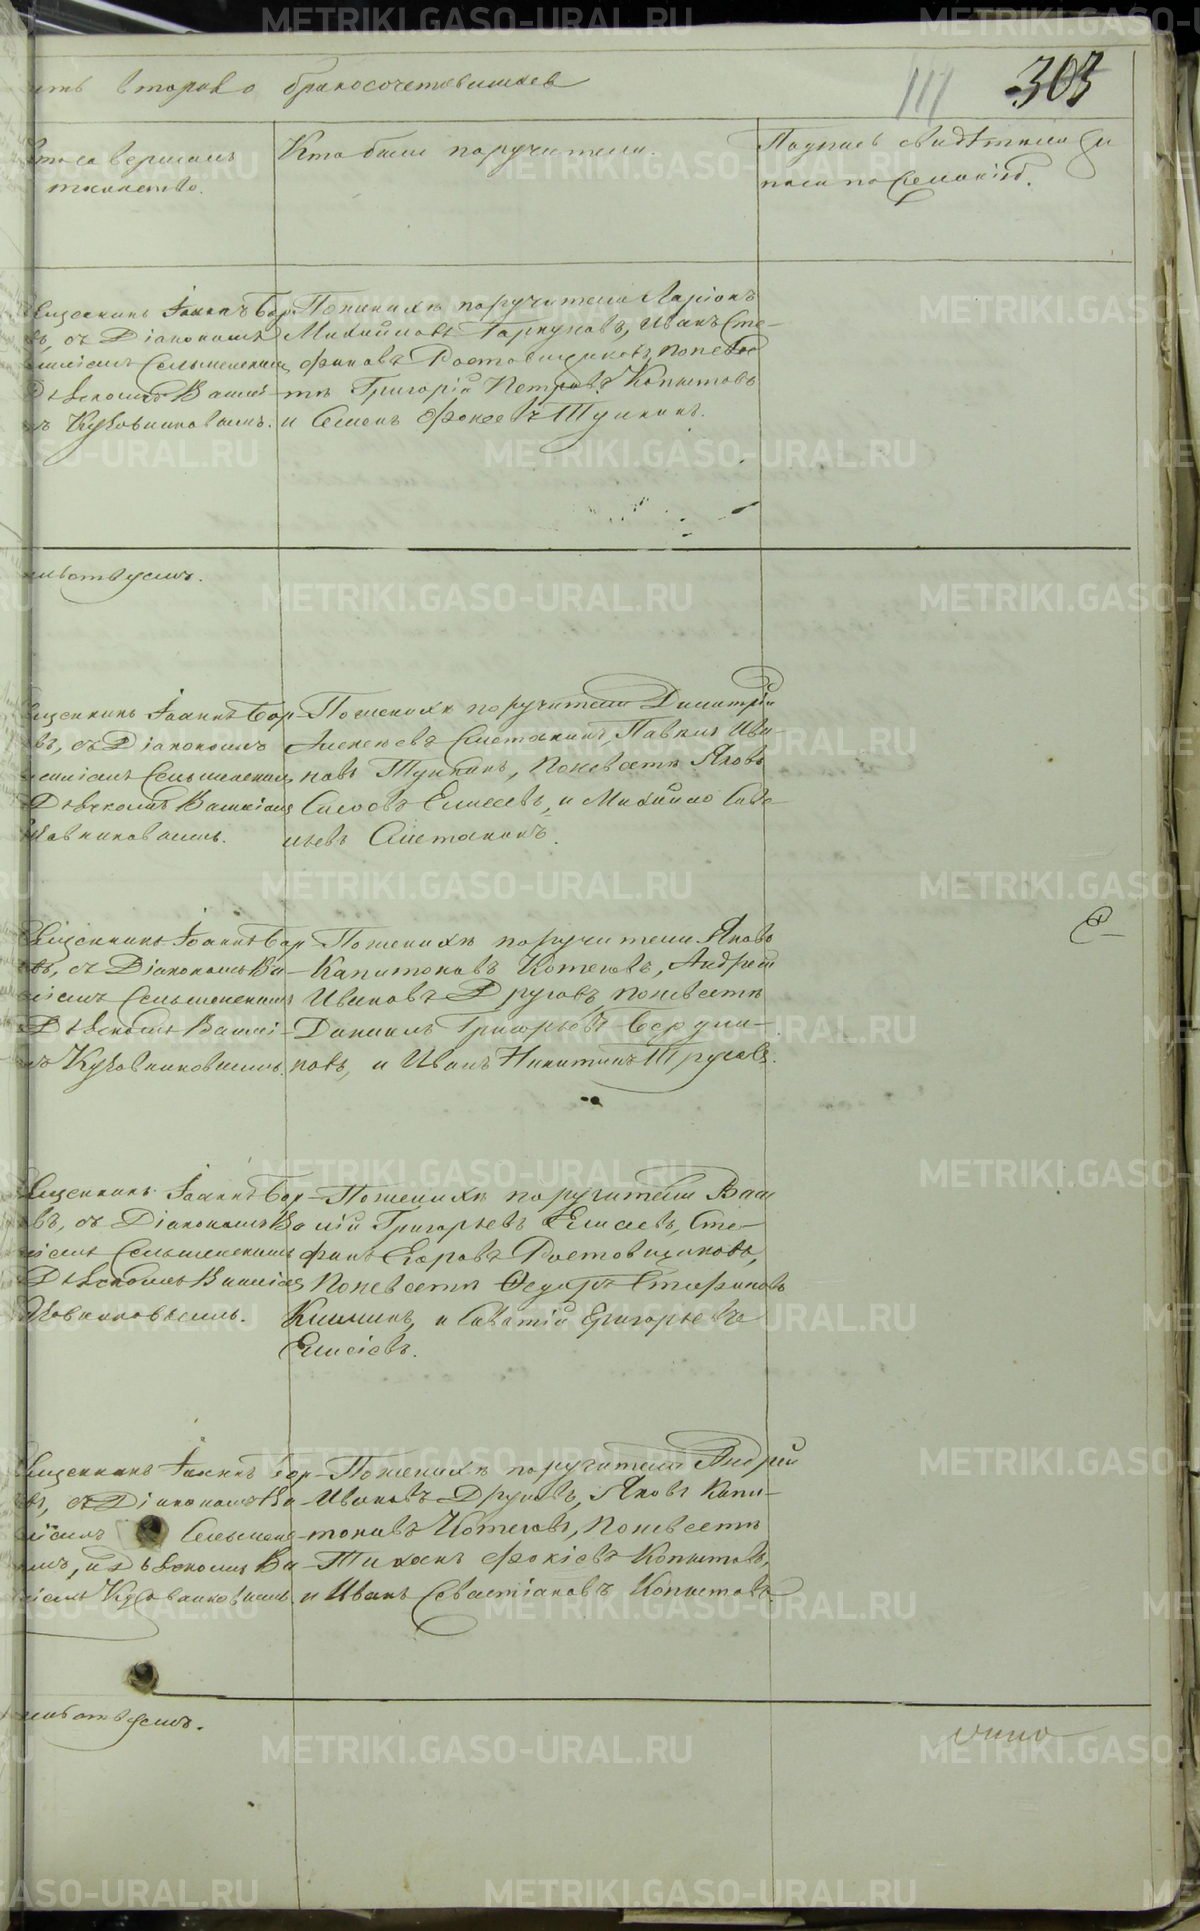 ить втораво бракосочетавшиеся
111 303
Кто совершалъ
таинство.
Кто были поручители.
Подпись свидѣтелей
записи по желанію.
Священникъ Іоаннъ Бор-
въ, съ Діакономъ
Сельменскимъ
Дьячкомъ Васил-
Кудовниковымъ.
По женихѣ поручители Ларіонъ
Михайловъ Паркуновъ, Иванъ Сте-
фановъ Ростовщиковъ, по невѣс
тѣ Григорій Петровъ Копытовъ
и Семенъ Фокеевъ Тункинъ.
льствуемъ.
Священникъ Іоаннъ Бор-
въ, съ Діакономъ
Сельменскимъ
Дьячкомъ Васил
довниковымъ.
По женихѣ поручители Димитрій
Алексеевъ Сметанинъ, Павелъ Ива-
новъ Тункинъ, по невѣстѣ Яковъ
Сысоевъ Елисеевъ, и Михайло Саве-
льевъ Сметанинъ.
Священникъ Іоаннъ Бор
въ, съ Діакономъ Ва-
Сельменскимъ
Дьячкомъ Васил-
Кудовниковымъ.
По женихѣ поручители Яковъ
Капитоновъ Котеговъ, Андрей
Ивановъ Друговъ, по невѣстѣ
Даніилъ Григорьевъ Бердни-
ковъ, и Иванъ Никитинъ Трусовъ.
Священникъ Іоаннъ Бор
въ, съ Діакономъ Ва
Сельменскимъ
Дьячкомъ Васил
довниковымъ.
По женихѣ поручители Васи
лій Григорьевъ Елисеевъ, Сте-
фанъ Егоровъ Ростовщиковъ,
по невѣстѣ Ѳедоръ Стефановъ
Климинъ, и Саватій Григорьевъ
Елисѣевъ.
Священникъ Іоаннъ Бор
въ, съ Діакономъ Ва-
Сельменс
мъ, и Дьячкомъ Ва
Кудовниковымъ
По женихѣ поручители Андрей
Ивановъ Друговъ, Яковъ Капи-
тоновъ Котеговъ, по невѣстѣ
Тихонъ Фокіевъ Копытовъ,
и Иванъ Севастіановъ Копытовъ.
льствуемъ.
METRIKI.GASO-URAL.RU